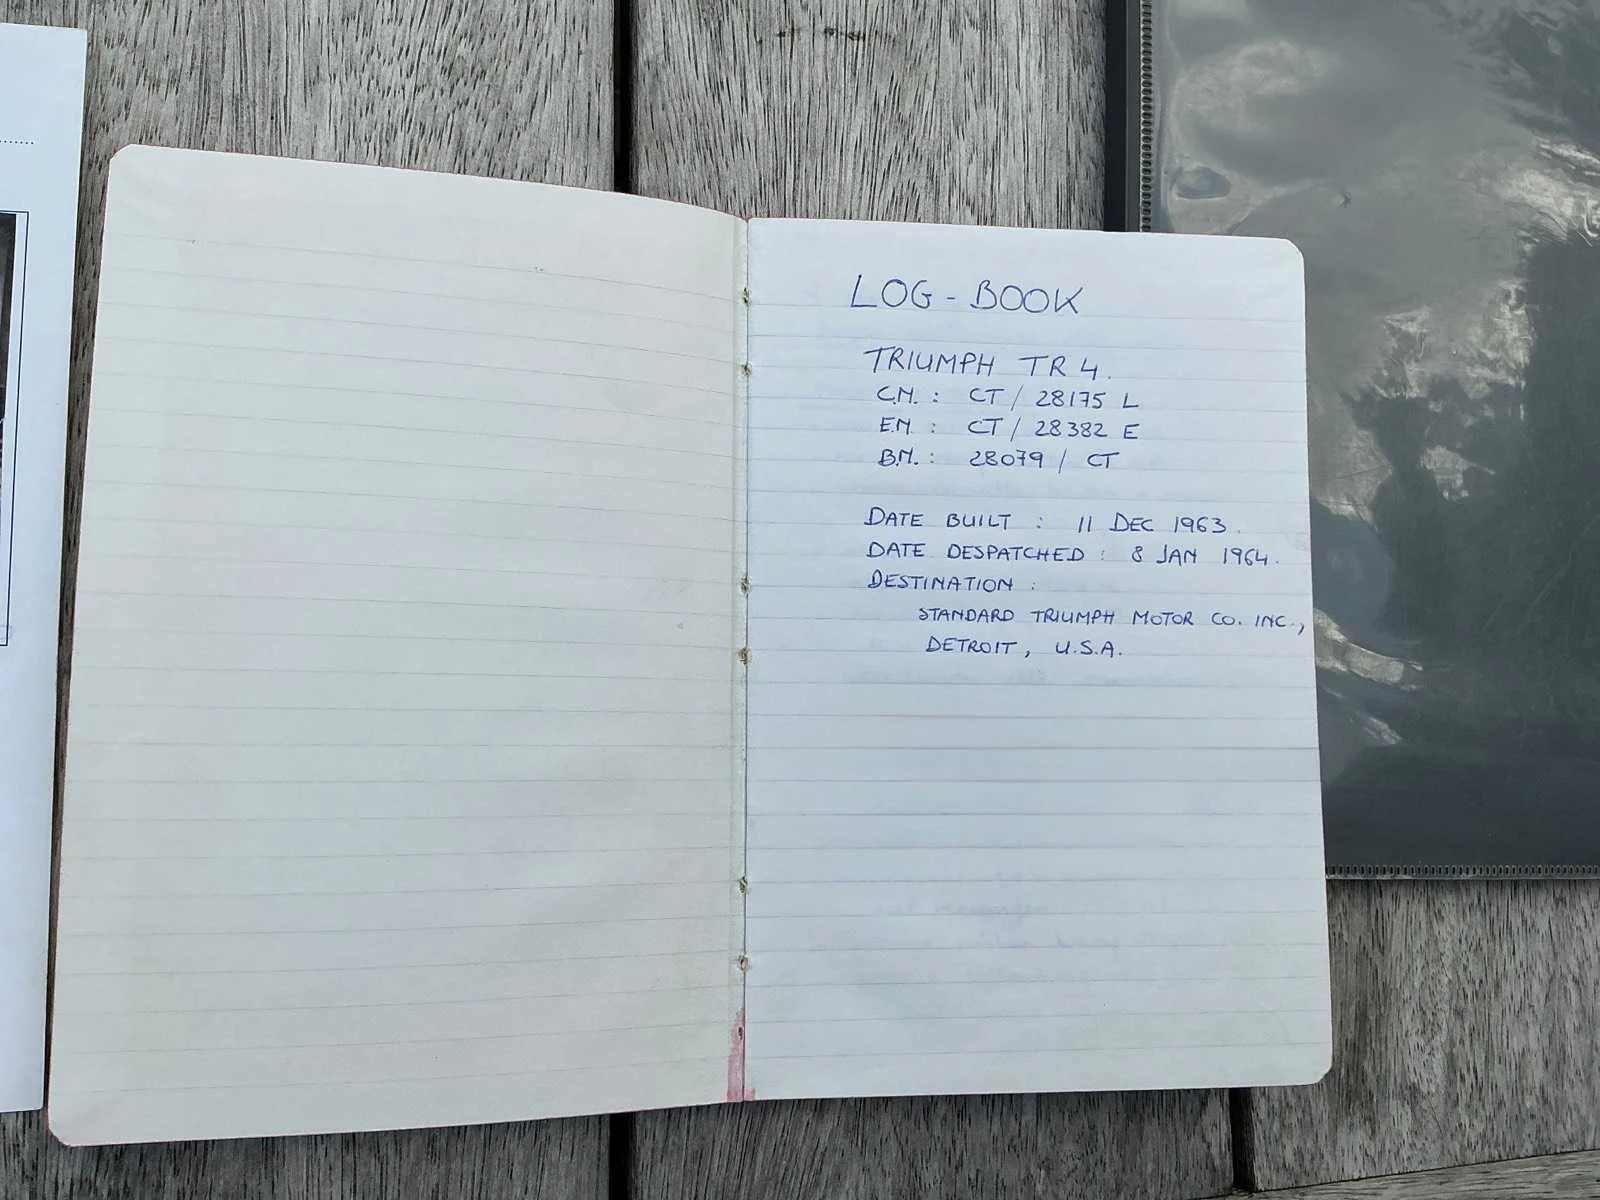 LOG - BOOK
TRIUMPH TR 4.
C.N. : CT / 28175 L
E.N. : CT / 28382 E
B.N. : 28079 / CT
DATE BUILT : 11 DEC 1963.
DATE DESPATCHED : 8 JAN 1964.
DESTINATION :
STANDARD TRIUMPH MOTOR CO. INC.,
DETROIT, U.S.A.